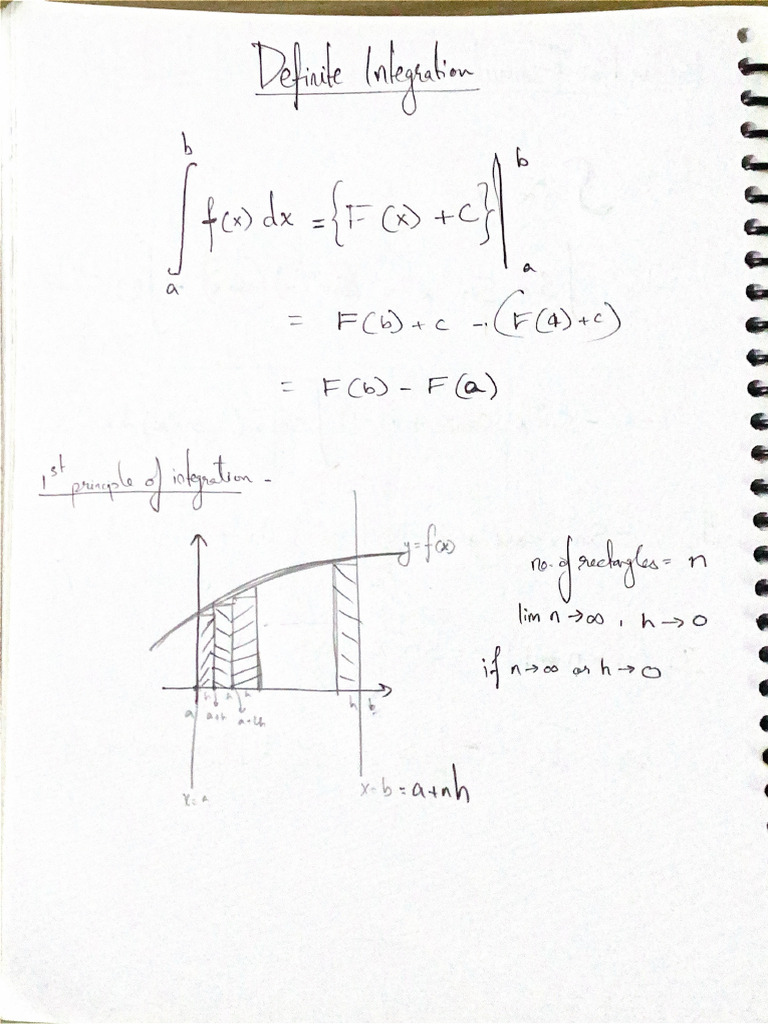 Definite Integration
b
∫ f(x) dx = {F(x) + C} | b
a a
= F(b) + c - (F(a) + c)
= F(b) - F(a)
1st principle of integration -
y = f(x)
no. of rectangles = n
lim n → ∞, h → 0
if n → ∞ or h → 0
h h h h
a a+h a+2h b
x = a
x = b = a + nh